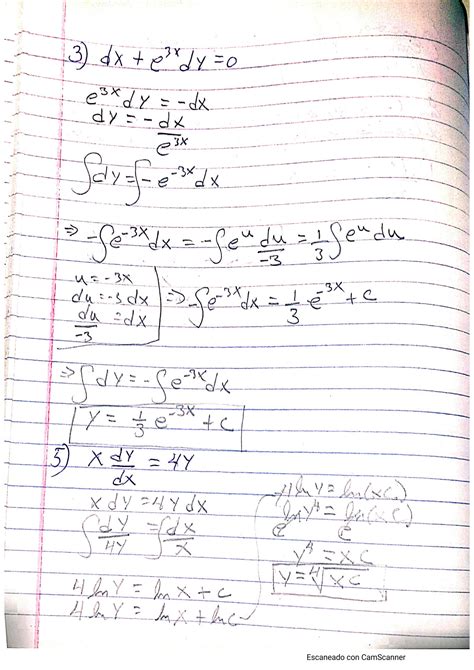 3) dx + e^{3x} dy = 0
e^{3x} dy = -dx
dy = - dx / e^{3x}
∫dy = ∫ -e^{-3x} dx
⇒ -∫e^{-3x} dx = -∫e^u du/-3 = 1/3 ∫e^u du
u = -3x
du = -3 dx
du/-3 = dx
⇒ -∫e^{-3x} dx = 1/3 e^{-3x} + c
⇒ ∫dy = -∫e^{-3x} dx
y = 1/3 e^{-3x} + c
5) x dy/dx = 4y
x dy = 4y dx
∫ dy/4y = ∫ dx/x
4 ln y = ln x + c
4 ln y = ln x + ln c
4 ln y = ln(xc)
e^{ln y^4} = e^{ln(xc)}
y^4 = xc
y = ⁴√xc
Escaneado con CamScanner